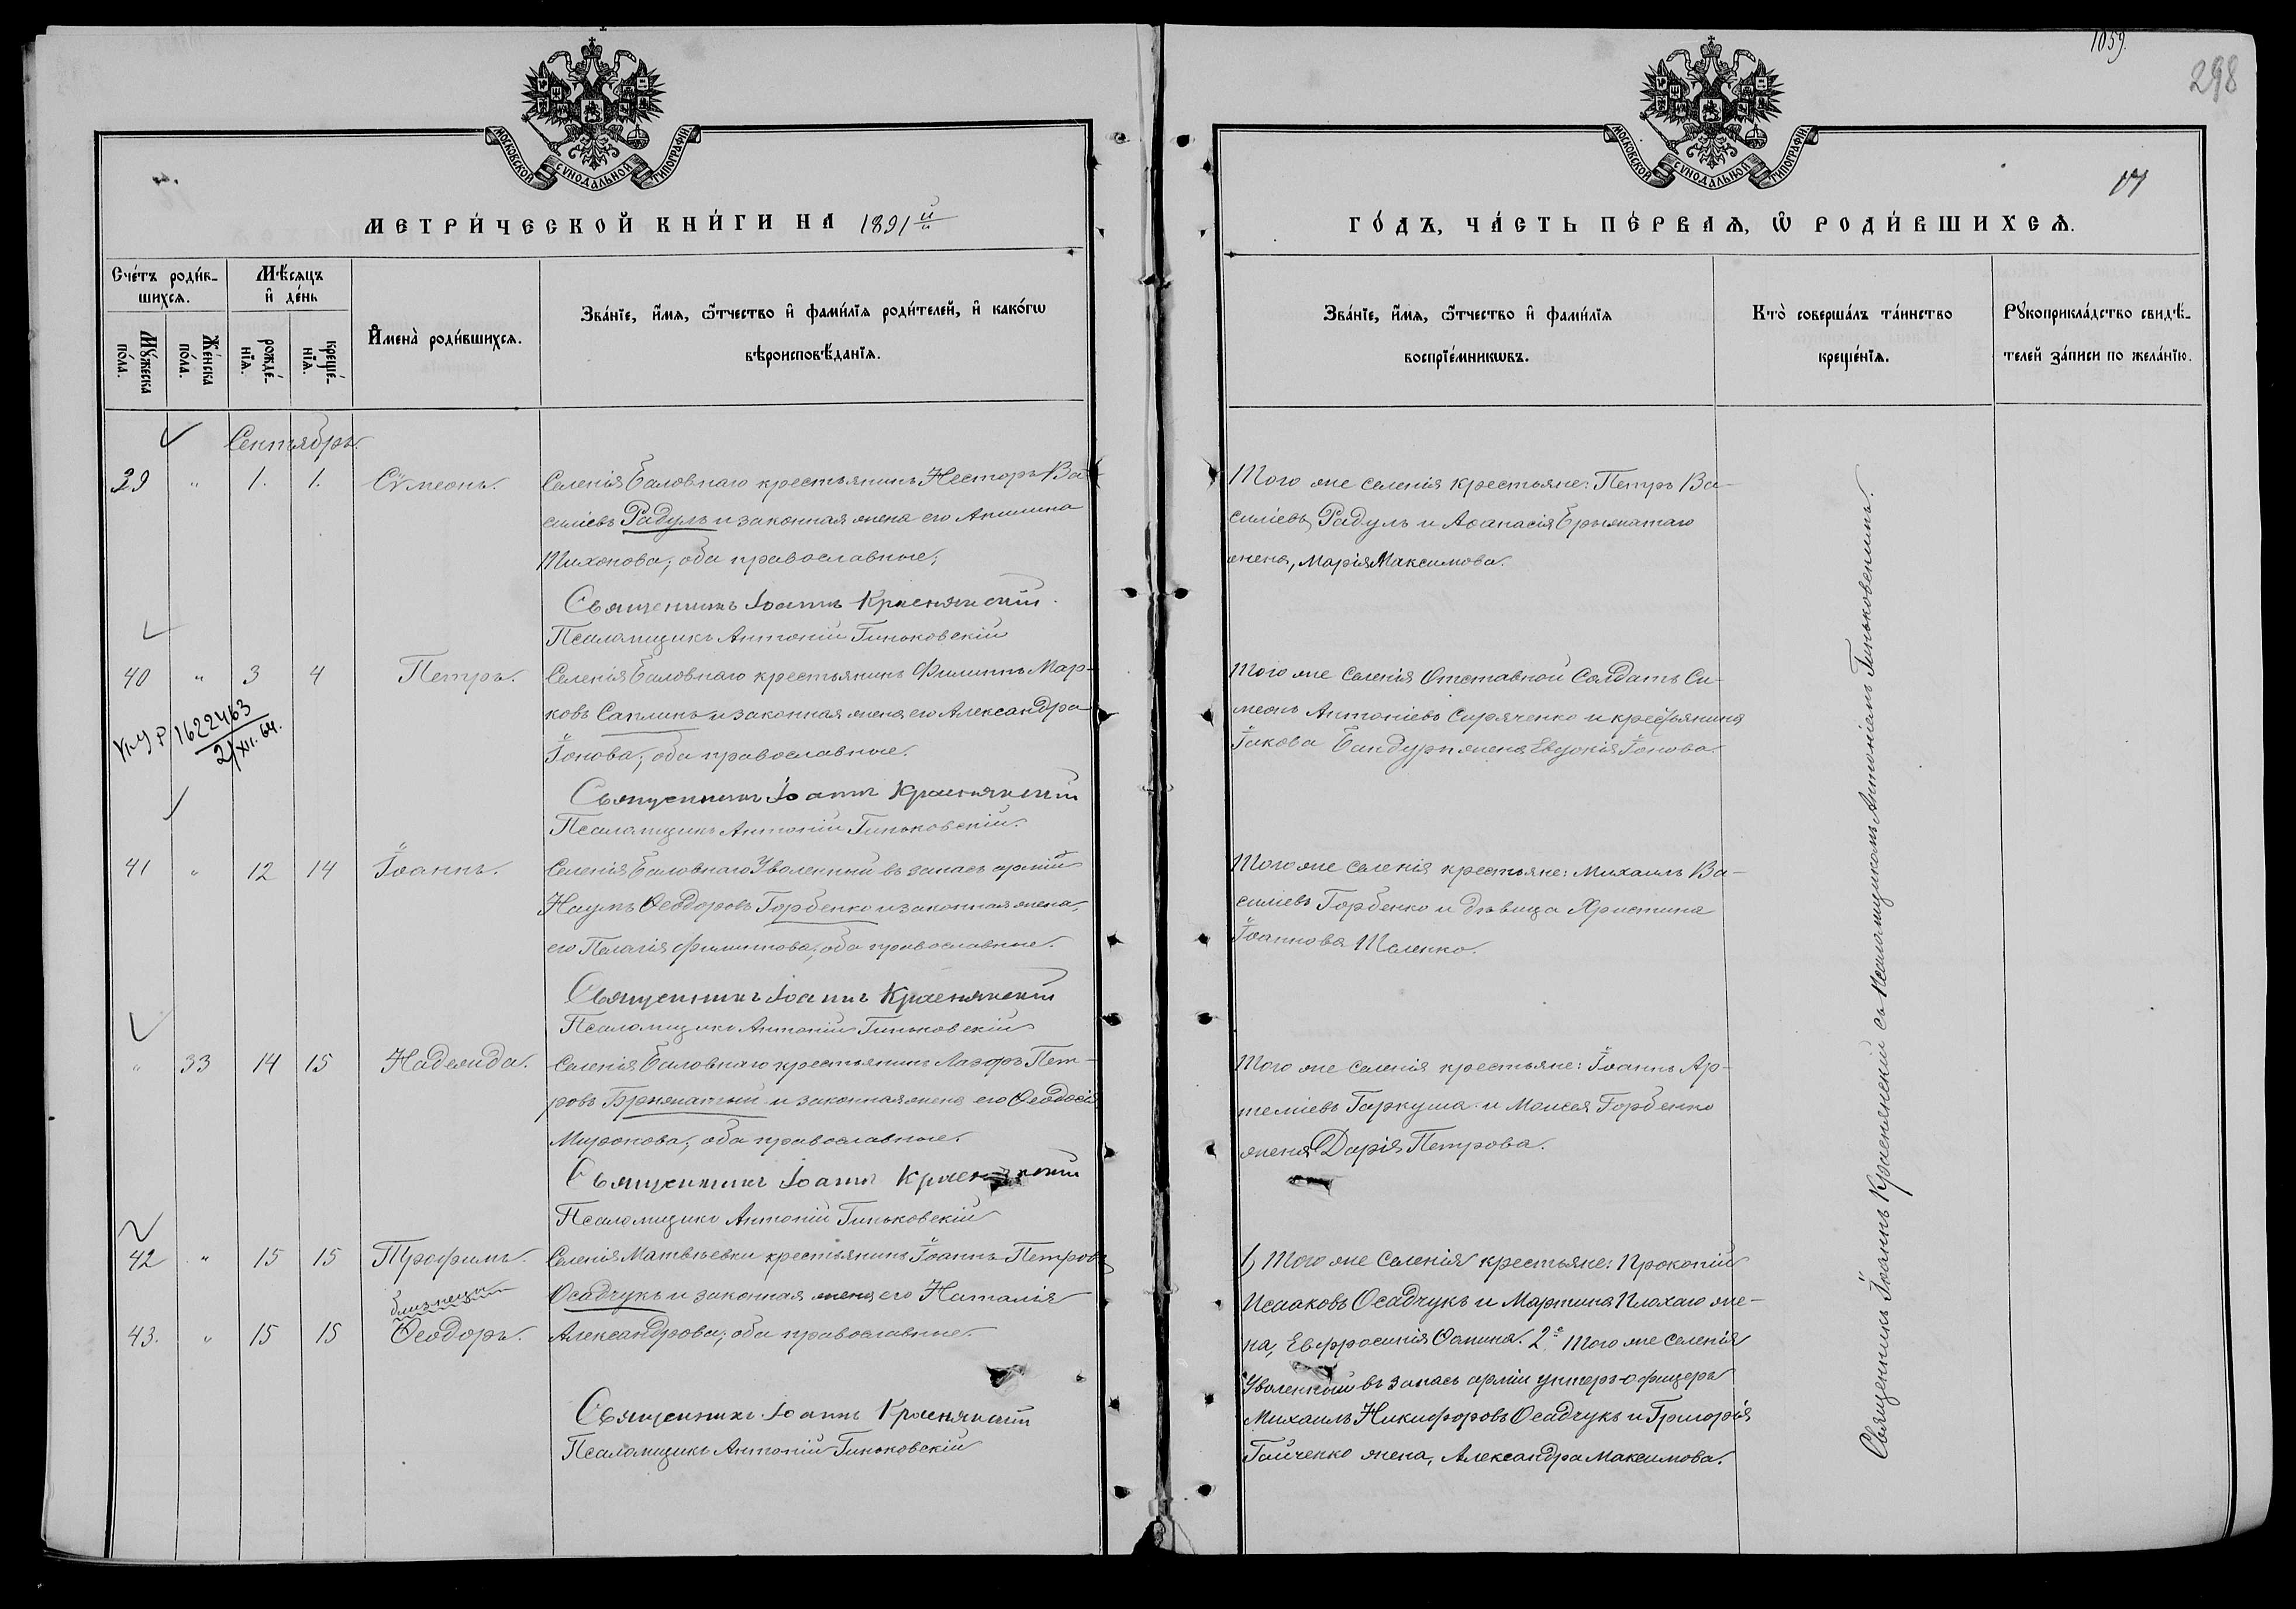 1059.
298
МОСКОВСКОЙ СѴНОДАЛЬНОЙ ТИПОГРАФІИ
МОСКОВСКОЙ СѴНОДАЛЬНОЙ ТИПОГРАФІИ
17
МЕТРИ́ЧЕСКОЙ КНИ́ГИ НА 1891й
ГО́ДЪ, ЧА́СТЬ ПЕ́РВАѦ, Ѡ РОДИ́ВШИХСѦ.
Сче́тъ роди́вшихсѧ.
Мꙋ́жеска по́ла.
Же́нска по́ла.
Мѣ́сѧцъ и де́нь
рожде́нїѧ.
креще́нїѧ.
Имена̀ роди́вшихсѧ.
Зва́нїе, и́мѧ, ѻ҆́тчество и фами́лїѧ роди́телей, и како́гѡ
вѣроисповѣ́данїѧ.
Зва́нїе, и́мѧ, ѻ҆́тчество и фами́лїѧ
воспрїе́мникѡвъ.
Кто̀ соверша́лъ та́инство
креще́нїѧ.
Рꙋкоприкла́дство свидѣ́-
телей за́писи по жела́нїю.
Сентябрь.
39 " 1. 1. Сѵмеонъ. Селенія Баловнаго крестьянинъ Несторъ Ва-
силіевъ Радулъ и законная жена его Акилина
Тихонова; оба православные.
Священникъ Іоаннъ Краснянскій
Псаломщикъ Антоній Гиньковскій
Того же селенія крестьяне: Петръ Ва-
силіевъ Радулъ и Афанасія Брыжатаго
жена, Марія Максимова.
40 " 3 4 Петръ. Селенія Баловнаго крестьянинъ Филиппъ Мар-
ковъ Саплинъ и законная жена его Александра
Іонова; оба православные.
Священникъ Іоаннъ Краснянскій
Псаломщикъ Антоній Гиньковскій
1622463
21/XII.64.
Того же селенія Отставной Солдатъ Си-
меонъ Антоніевъ Сиряченко и крестьянина
Іакова Бандури жена Евдокія Іонова.
41 " 12 14 Іоаннъ. Селенія Баловнаго Уволенный въ запасъ арміи
Наумъ Ѳеодоровъ Горбенко и законная жена
его Пелагія Филиппова; оба православные.
Священникъ Іоаннъ Краснянскій
Псаломщикъ Антоній Гиньковскій
Того же селенія крестьяне: Михаилъ Ва-
силіевъ Горбенко и дѣвица Христина
Іоаннова Шаленко.
" 33 14 15 Надежда. Селенія Баловнаго крестьянинъ Лазорь Пет-
ровъ Брыжатый и законная жена его Ѳеодосія
Миронова; оба православные.
Священникъ Іоаннъ Краснянскій
Псаломщикъ Антоній Гиньковскій
Того же селенія крестьяне: Іоаннъ Ар-
теміевъ Гаркуша и Моисея Горбенко
жена Дарія Петрова.
42 " 15 15 Трофимъ. Селенія Матвѣевки крестьянинъ Іоаннъ Петровъ
близнецы Осадчукъ и законная жена его Наталія
43. " 15 15 Ѳеодоръ. Александрова; оба православные.
Священникъ Іоаннъ Краснянскій
Псаломщикъ Антоній Гиньковскій
1) Того же селенія крестьяне: Прокопій
Исааковъ Осадчукъ и Мартина Плохаго же-
на, Евфросинія Ѳомина. 2е. Того же селенія
Уволенный въ запасъ арміи унтеръ-офицеръ
Михаилъ Никифоровъ Осадчукъ и Григорія
Гайченко жена, Александра Максимова.
Священникъ Іоаннъ Краснянскій съ псаломщикомъ Антоніемъ Гиньковскимъ.